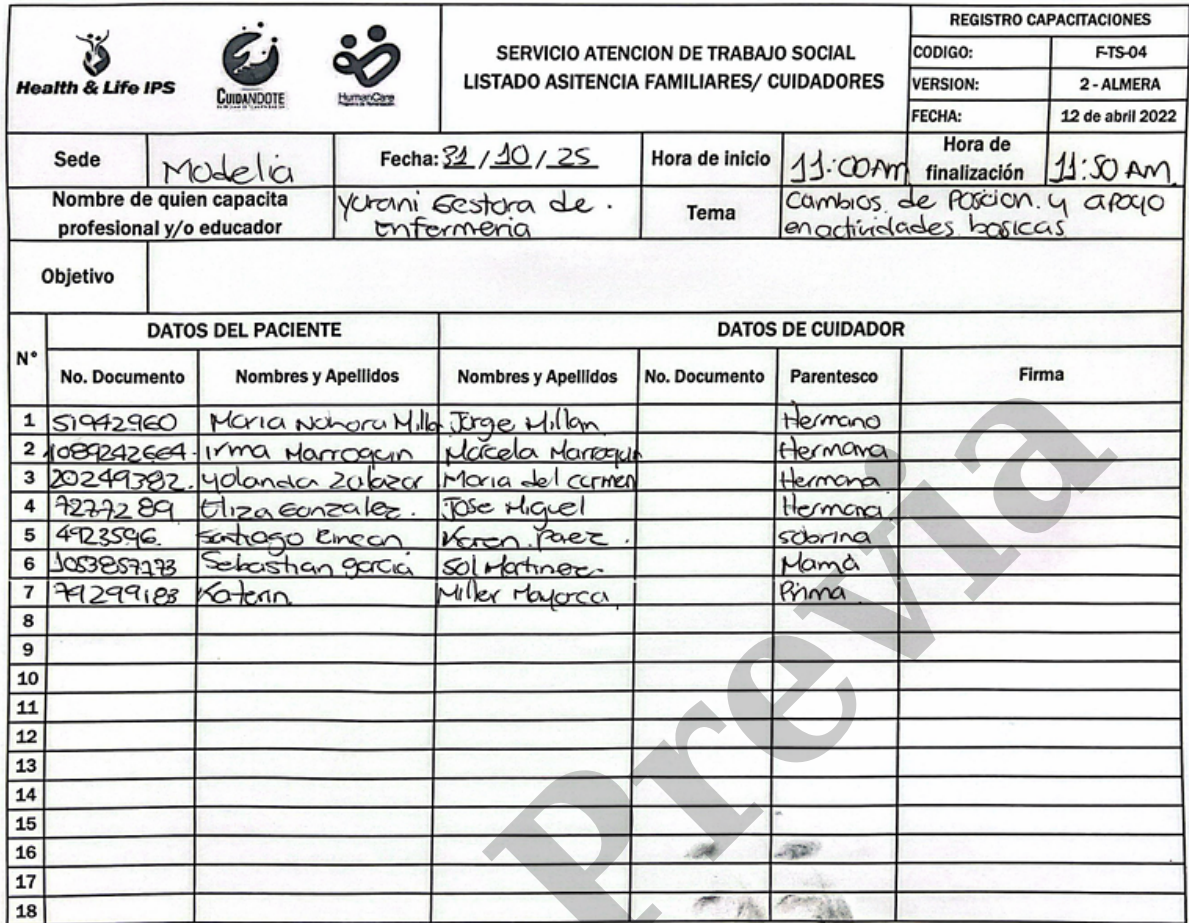 Health & Life IPS
CUIDANDOTE
HumanCare
SERVICIO ATENCION DE TRABAJO SOCIAL
LISTADO ASITENCIA FAMILIARES/ CUIDADORES
REGISTRO CAPACITACIONES
CODIGO: F-TS-04
VERSION: 2 - ALMERA
FECHA: 12 de abril 2022
Sede Modelia Fecha: 31/10/25 Hora de inicio 11:00 AM Hora de finalización 11:50 AM.
Nombre de quien capacita profesional y/o educador Yurani Gestora de. Enfermeria Tema Cambios de Posicion. y apoyo en actividades basicas
Objetivo
N° DATOS DEL PACIENTE DATOS DE CUIDADOR
No. Documento Nombres y Apellidos Nombres y Apellidos No. Documento Parentesco Firma
1 51942960 Maria Nohora Milla Jorge Millan Hermano
2 1089242664. Irma Marroquin Macela Marroquin Hermana
3 20249382. Yolanda Zalazar Maria del carmen Hermana
4 7277289 Eliza Gonzalez. Jose Miguel Hermana.
5 4923596. Santiago Rincon Karen Paez. sobrina
6 1053857173 Sebastian garcia Sol Martinez. Mamá
7 79299183 Katerin Miller Mayorca Prima
8
9
10
11
12
13
14
15
16
17
18
Previa